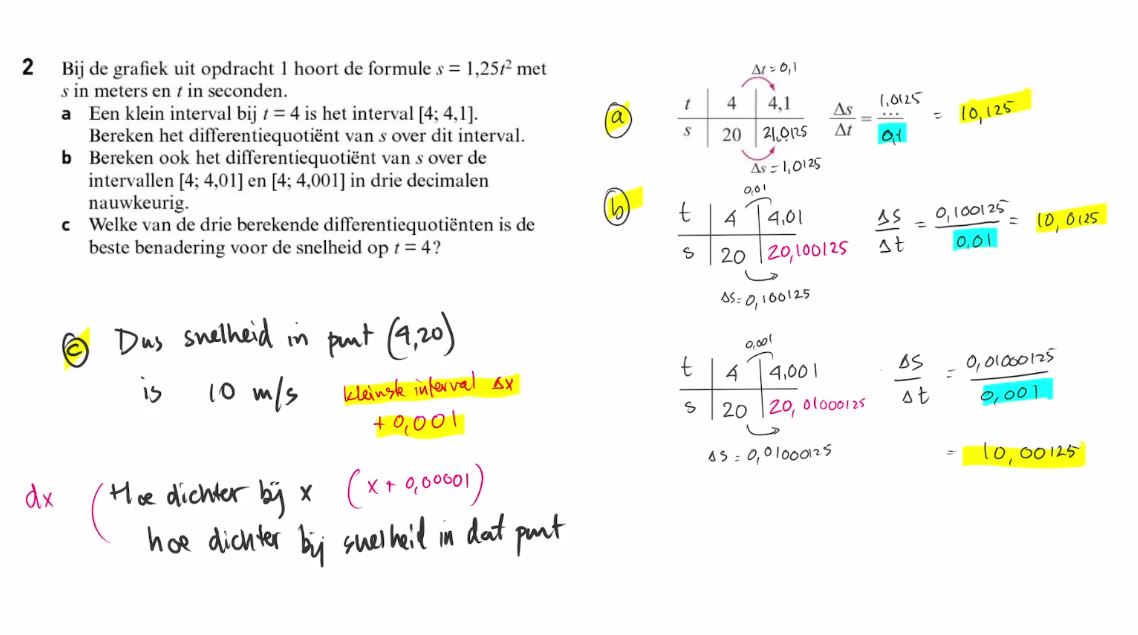 2 Bij de grafiek uit opdracht 1 hoort de formule s = 1,25t² met
s in meters en t in seconden.
a Een klein interval bij t = 4 is het interval [4; 4,1].
Bereken het differentiequotiënt van s over dit interval.
b Bereken ook het differentiequotiënt van s over de
intervallen [4; 4,01] en [4; 4,001] in drie decimalen
nauwkeurig.
c Welke van de drie berekende differentiequotiënten is de
beste benadering voor de snelheid op t = 4?
c Dus snelheid in punt (4,20)
is 10 m/s kleinste interval Δx
+ 0,001
dx ( Hoe dichter bij x (x + 0,00001)
hoe dichter bij snelheid in dat punt
Δt = 0,1
a t | 4 | 4,1 Δs/Δt = 1,0125 ... / 0,1 = 10,125
s | 20 | 21,0125
Δs = 1,0125
0,01
b t | 4 | 4,01 Δs/Δt = 0,100125 / 0,01 = 10,0125
s | 20 | 20,100125
Δs = 0,100125
0,001
t | 4 | 4,001 Δs/Δt = 0,01000125 / 0,001
s | 20 | 20,01000125
Δs = 0,01000125 = 10,00125